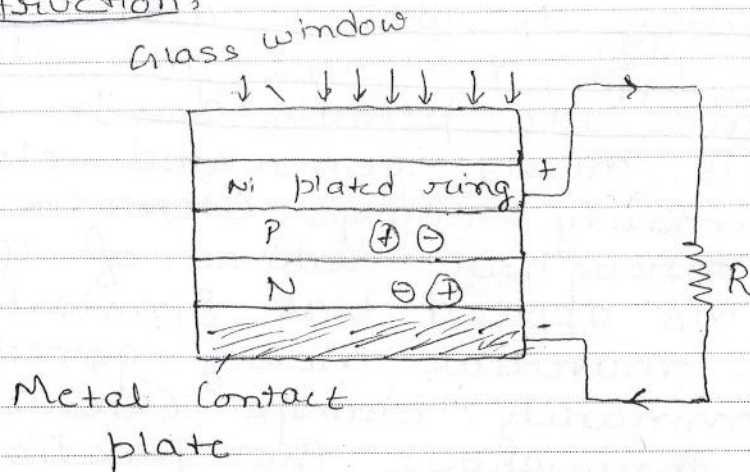 struction:
Glass window
+
Ni plated ring
P + -
N - +
R
-
Metal Contact
plate